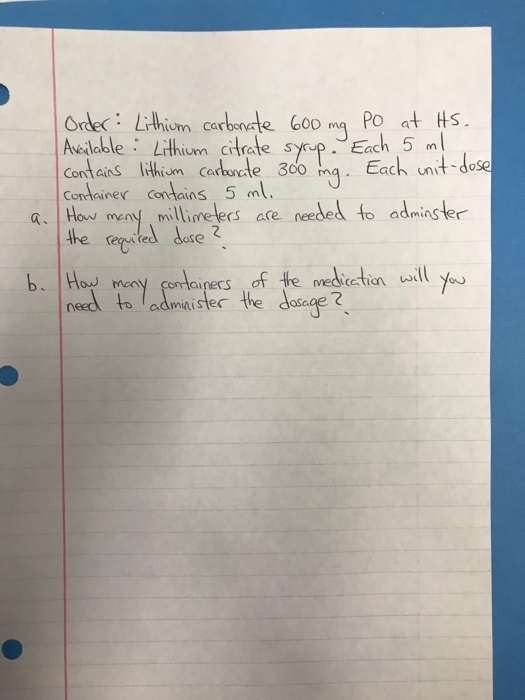 Order: Lithium carbonate 600 mg PO at HS.
Available: Lithium citrate syrup. Each 5 ml
contains lithium carbonate 300 mg. Each unit-dose
container contains 5 ml.
a. How many millimeters are needed to adminster
the required dose?
b. How many containers of the medication will you
need to administer the dosage?